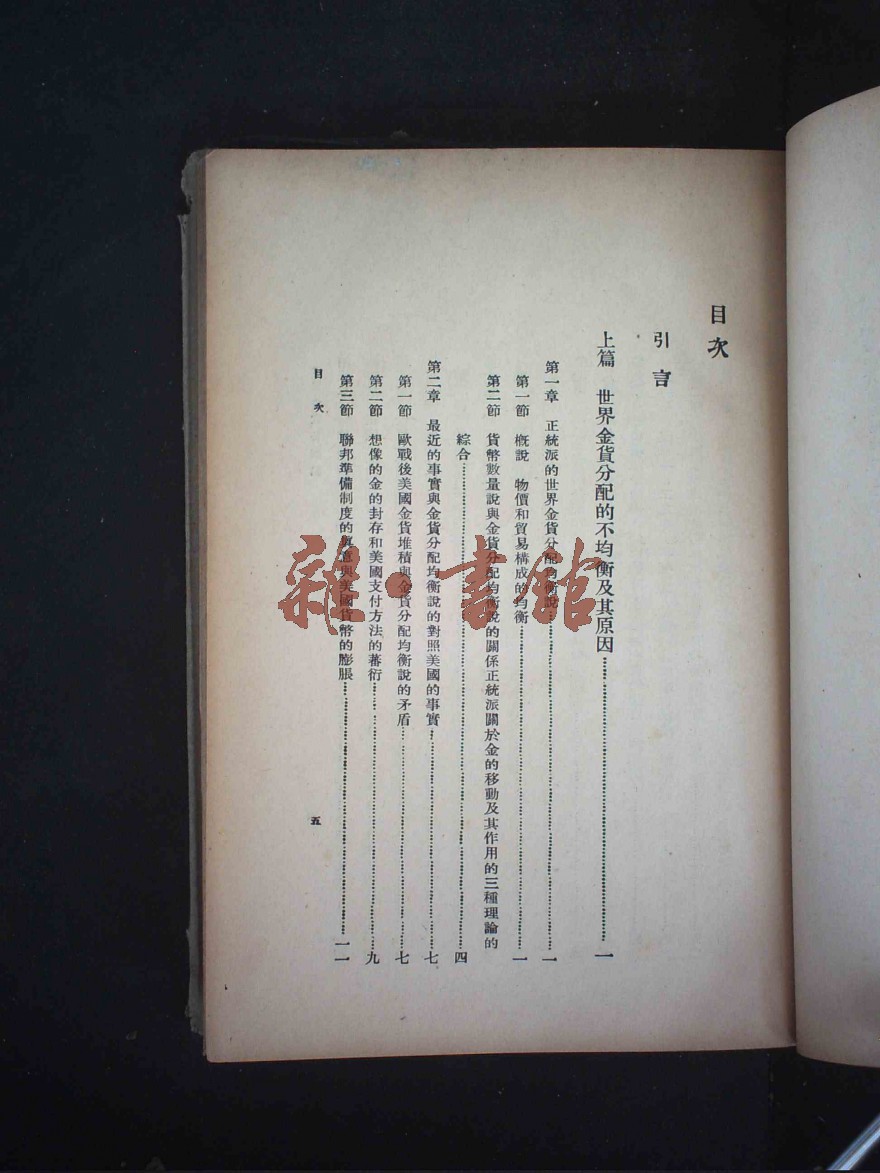 目次
引言
上篇 世界金貨分配的不均衡及其原因……一
第一章 正統派的世界金貨分配均衡說……一
第一節 概說 物價和貿易構成的均衡……一
第二節 貨幣數量說與金貨分配均衡說的關係正統派關於金的移動及其作用的三種理論的
綜合……四
第二章 最近的事實與金貨分配均衡說的對照美國的事實……七
第一節 歐戰後美國金貨堆積與金貨分配均衡說的矛盾……七
第二節 想像的金的封存和美國支付方法的蕃衍……九
第三節 聯邦準備制度的與美國貨幣的膨脹……一一
目次
五
雜·書館